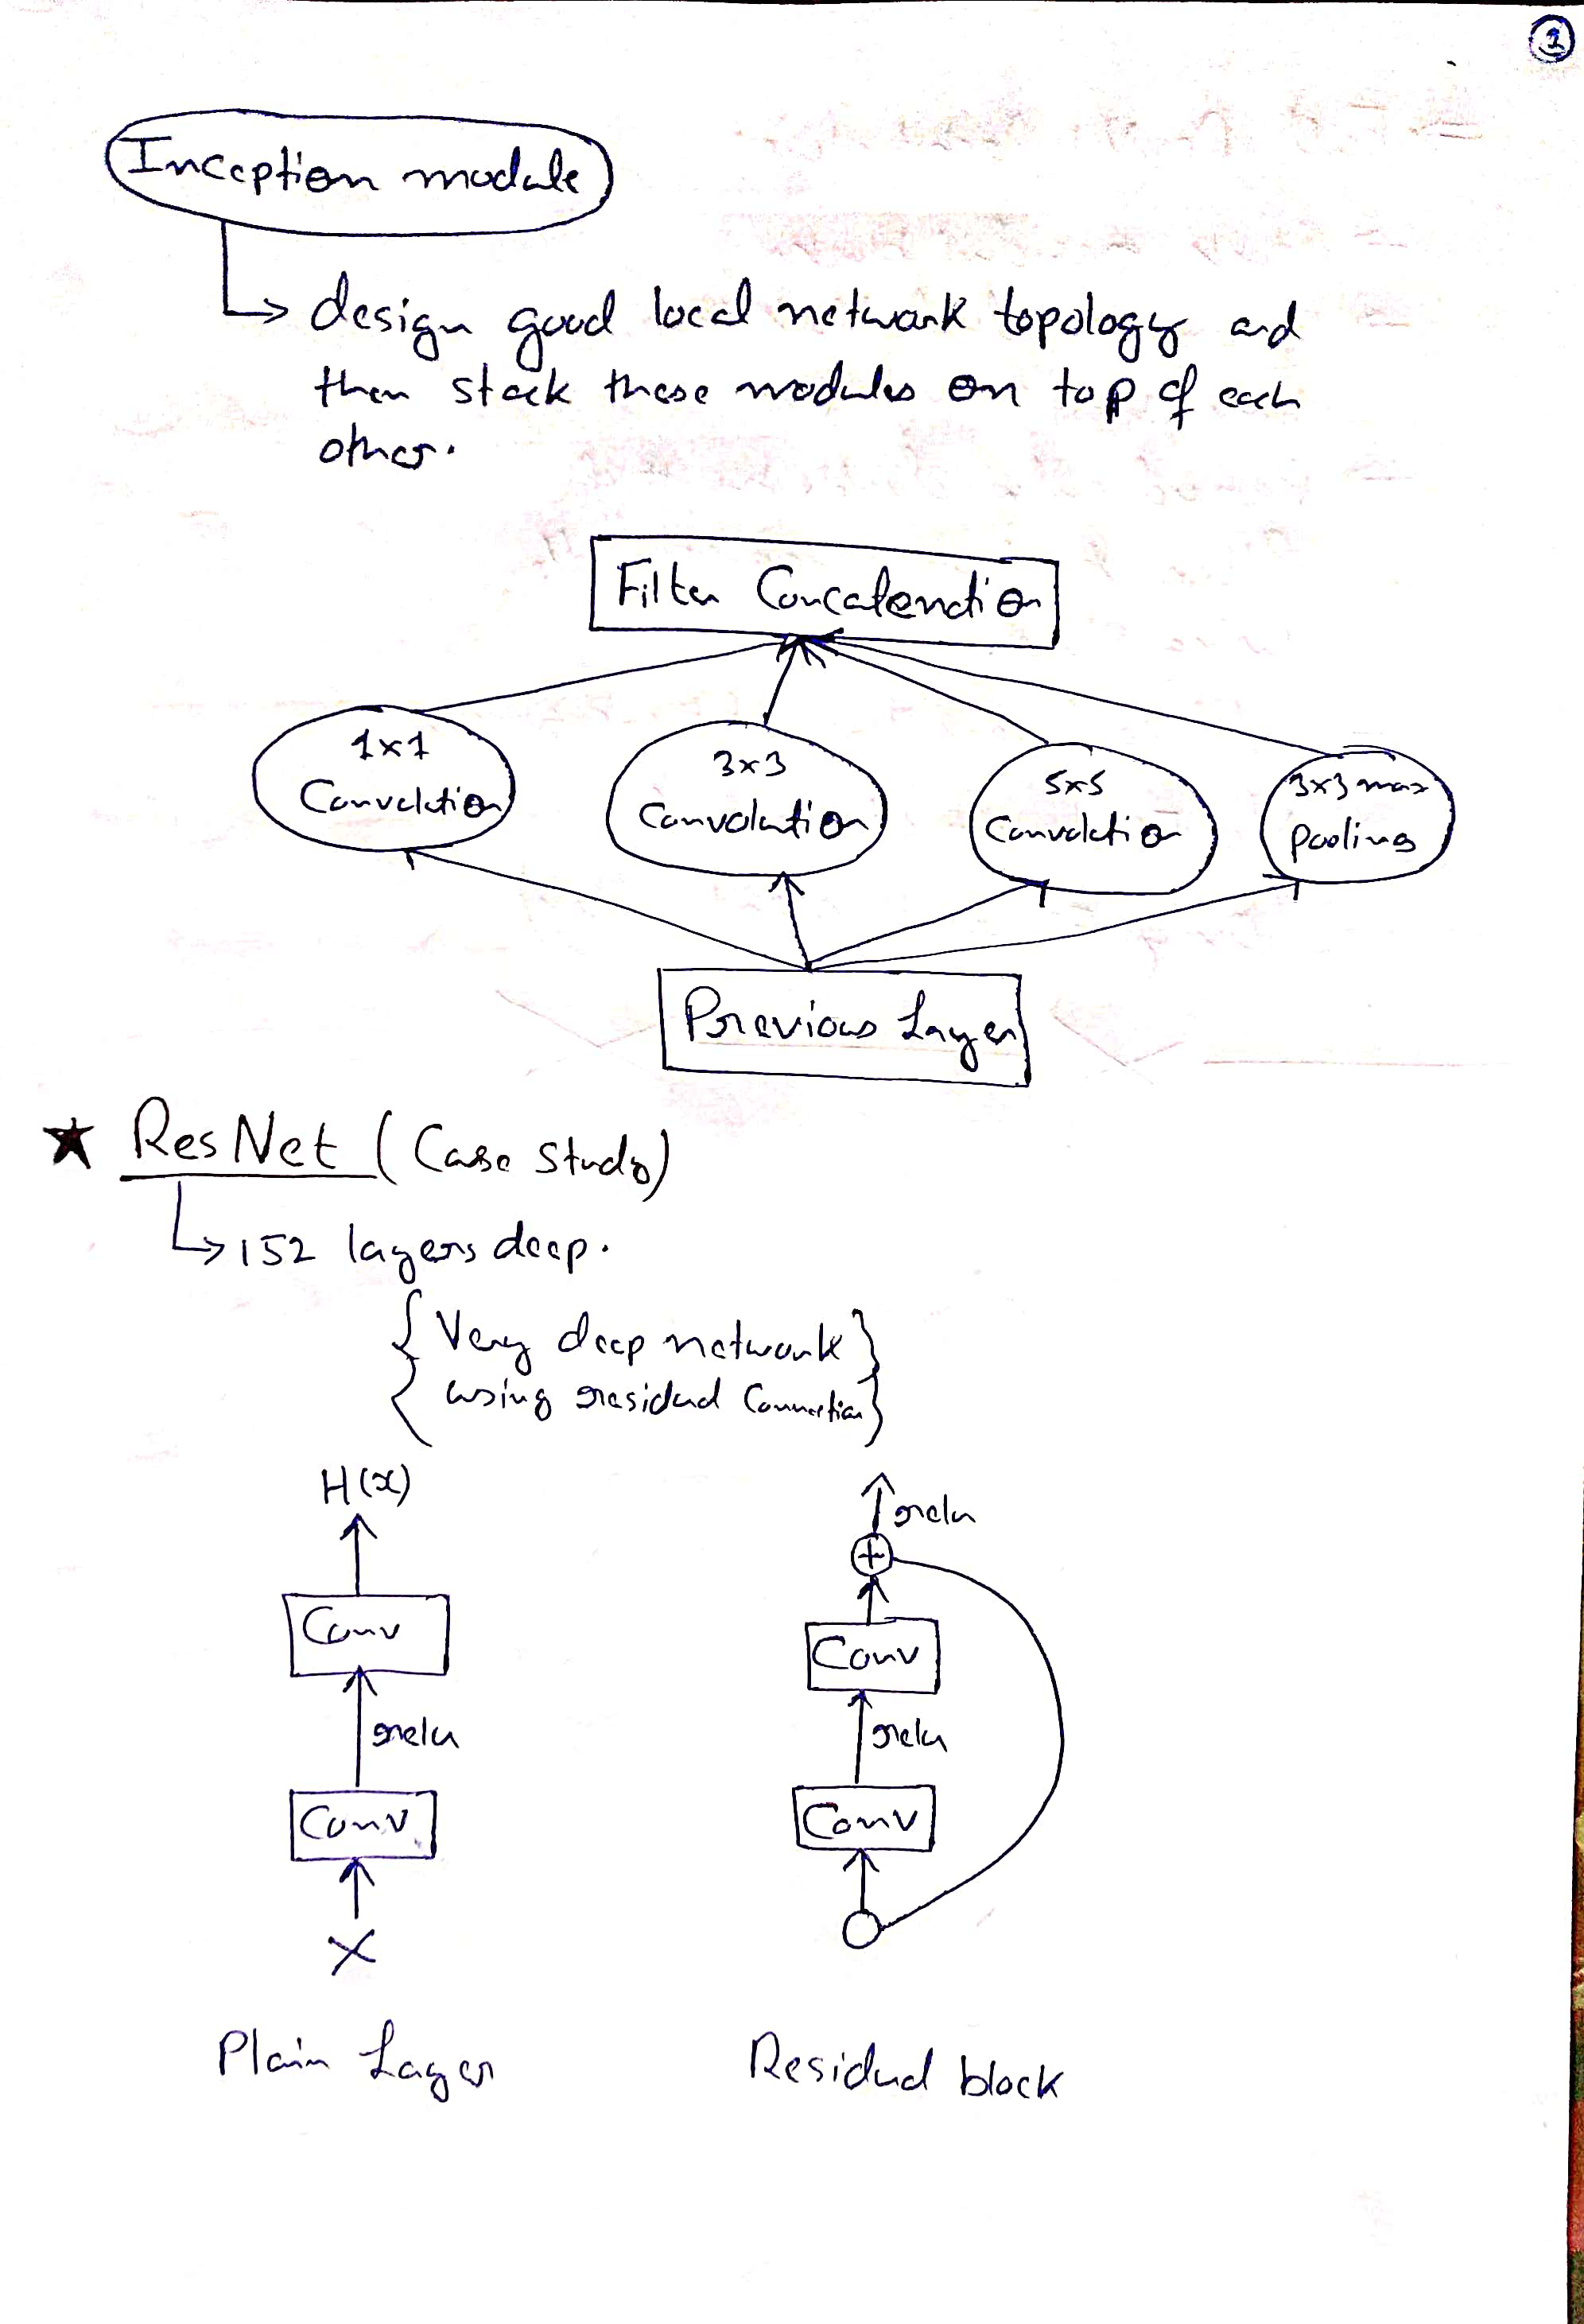 2
Inception module
design good local network topology and
then stack these modules on top of each
other.
Filter Concatenation
1x1
Convolution
3x3
Convolution
5x5
Convolution
3x3 max
pooling
Previous Layer
★ ResNet (Case Study)
152 layers deep.
{ Very deep network }
{ using residual Connection }
H(x)
relu
+
Conv
Conv
relu
relu
Conv
Conv
X
Plain Layer
Residual block